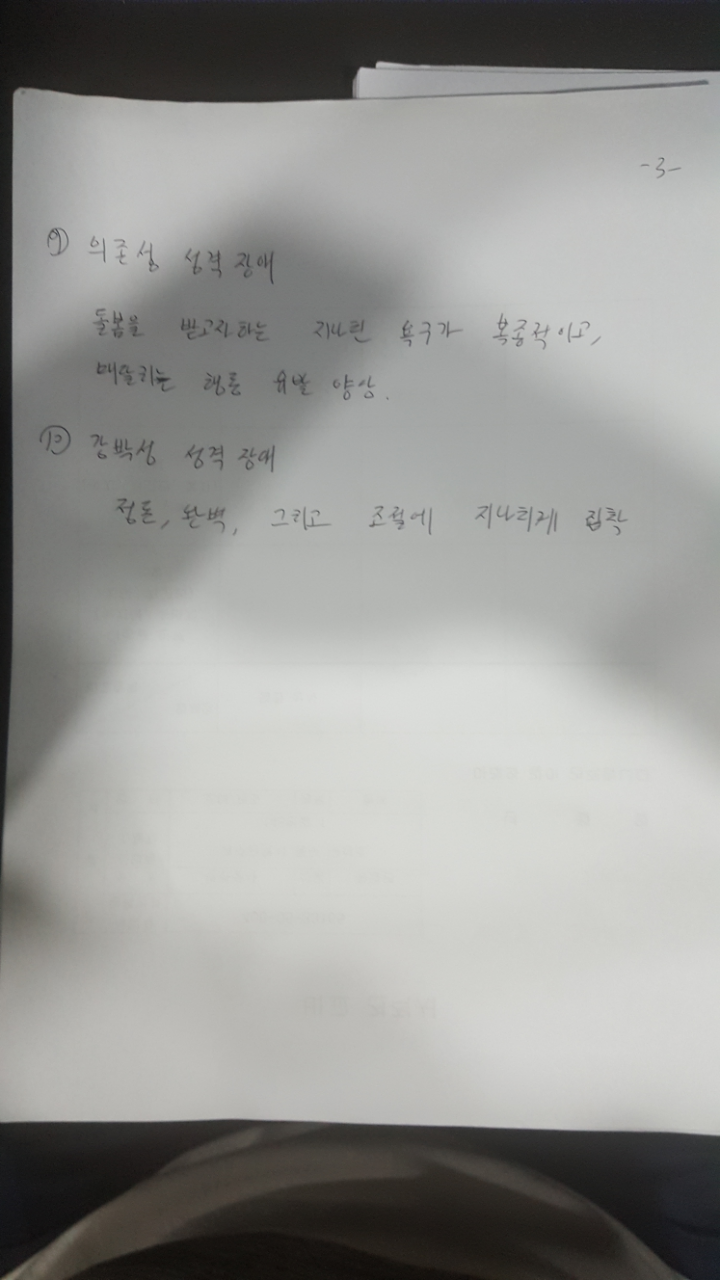 -3-
⑨ 의존성 성격 장애
돌봄을 받고자하는 지나친 욕구가 복종적이고,
매달리는 행동 유발 양상.
⑩ 강박성 성격 장애
정돈, 완벽, 그리고 조절에 지나치게 집착